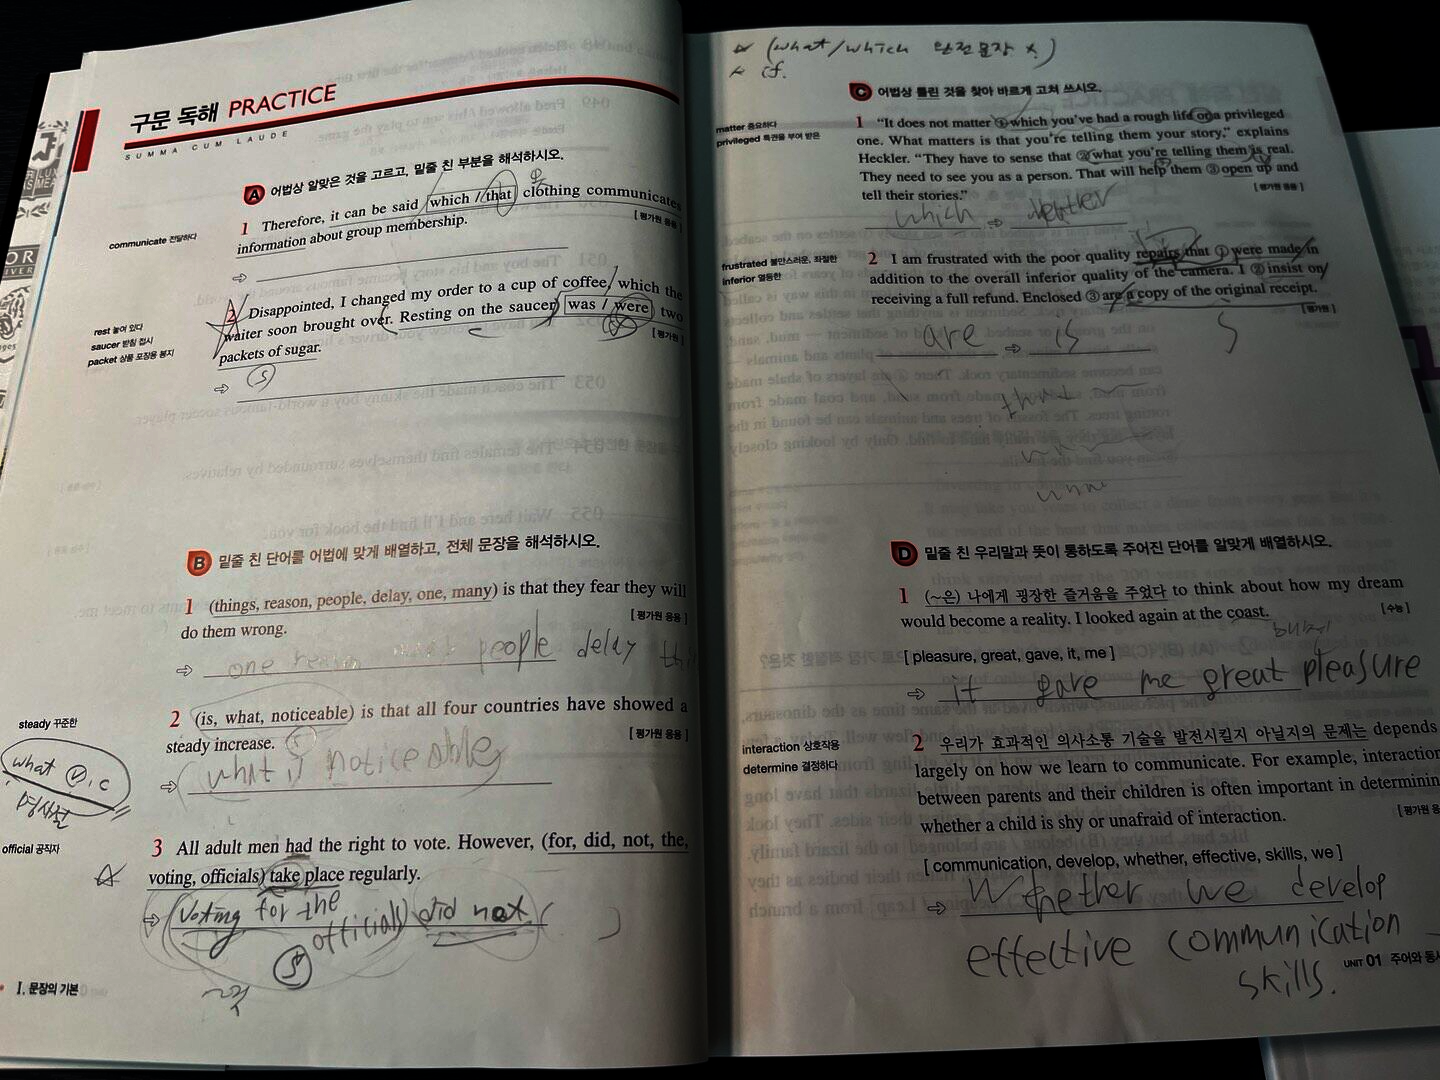 구문 독해 PRACTICE
SUMMA CUM LAUDE
A 어법상 알맞은 것을 고르고, 밑줄 친 부분을 해석하시오.
1 Therefore, it can be said which / that clothing communicates
information about group membership.
[ 평가원 응용 ]
communicate 전달하다
⇨
2 Disappointed, I changed my order to a cup of coffee, which the
waiter soon brought over. Resting on the saucer was / were two
packets of sugar.
[ 평가원 ]
rest 놓여 있다
saucer 받침 접시
packet 상품 포장용 봉지
S
⇨
B 밑줄 친 단어를 어법에 맞게 배열하고, 전체 문장을 해석하시오.
1 (things, reason, people, delay, one, many) is that they fear they will
do them wrong.
[ 평가원 응용 ]
⇨ one reason people delay
2 (is, what, noticeable) is that all four countries have showed a
steady increase.
[ 평가원 응용 ]
steady 꾸준한
⇨ what is noticeable
what V, C
명사절
3 All adult men had the right to vote. However, (for, did, not, the,
voting, officials) take place regularly.
official 공직자
⇨ (voting for the
officials) did not
S
I. 문장의 기본
(what/which 완전문장 x)
cf.
C 어법상 틀린 것을 찾아 바르게 고쳐 쓰시오.
matter 중요하다
privileged 특권을 부여 받은
1 "It does not matter ① which you've had a rough life or a privileged
one. What matters is that you're telling them your story," explains
Heckler. "They have to sense that ② what you're telling them is real.
They need to see you as a person. That will help them ③ open up and
tell their stories."
[ 평가원 응용 ]
which ⇨
frustrated 불만스러운, 좌절한
inferior 열등한
2 I am frustrated with the poor quality repairs that ① were made in
addition to the overall inferior quality of the camera. I ② insist on
receiving a full refund. Enclosed ③ are a copy of the original receipt.
[ 평가원 ]
are ⇨ is
S
that
D 밑줄 친 우리말과 뜻이 통하도록 주어진 단어를 알맞게 배열하시오.
1 (~은) 나에게 굉장한 즐거움을 주었다 to think about how my dream
would become a reality. I looked again at the coast.
[ 수능 ]
[ pleasure, great, gave, it, me ]
⇨ it gave me great pleasure
interaction 상호작용
determine 결정하다
2 우리가 효과적인 의사소통 기술을 발전시킬지 아닐지의 문제는 depends
largely on how we learn to communicate. For example, interaction
between parents and their children is often important in determinin
whether a child is shy or unafraid of interaction.
[ 평가원 응
[ communication, develop, whether, effective, skills, we ]
⇨ Whether we develop
effective communication
skills.
UNIT 01 주어와 동사